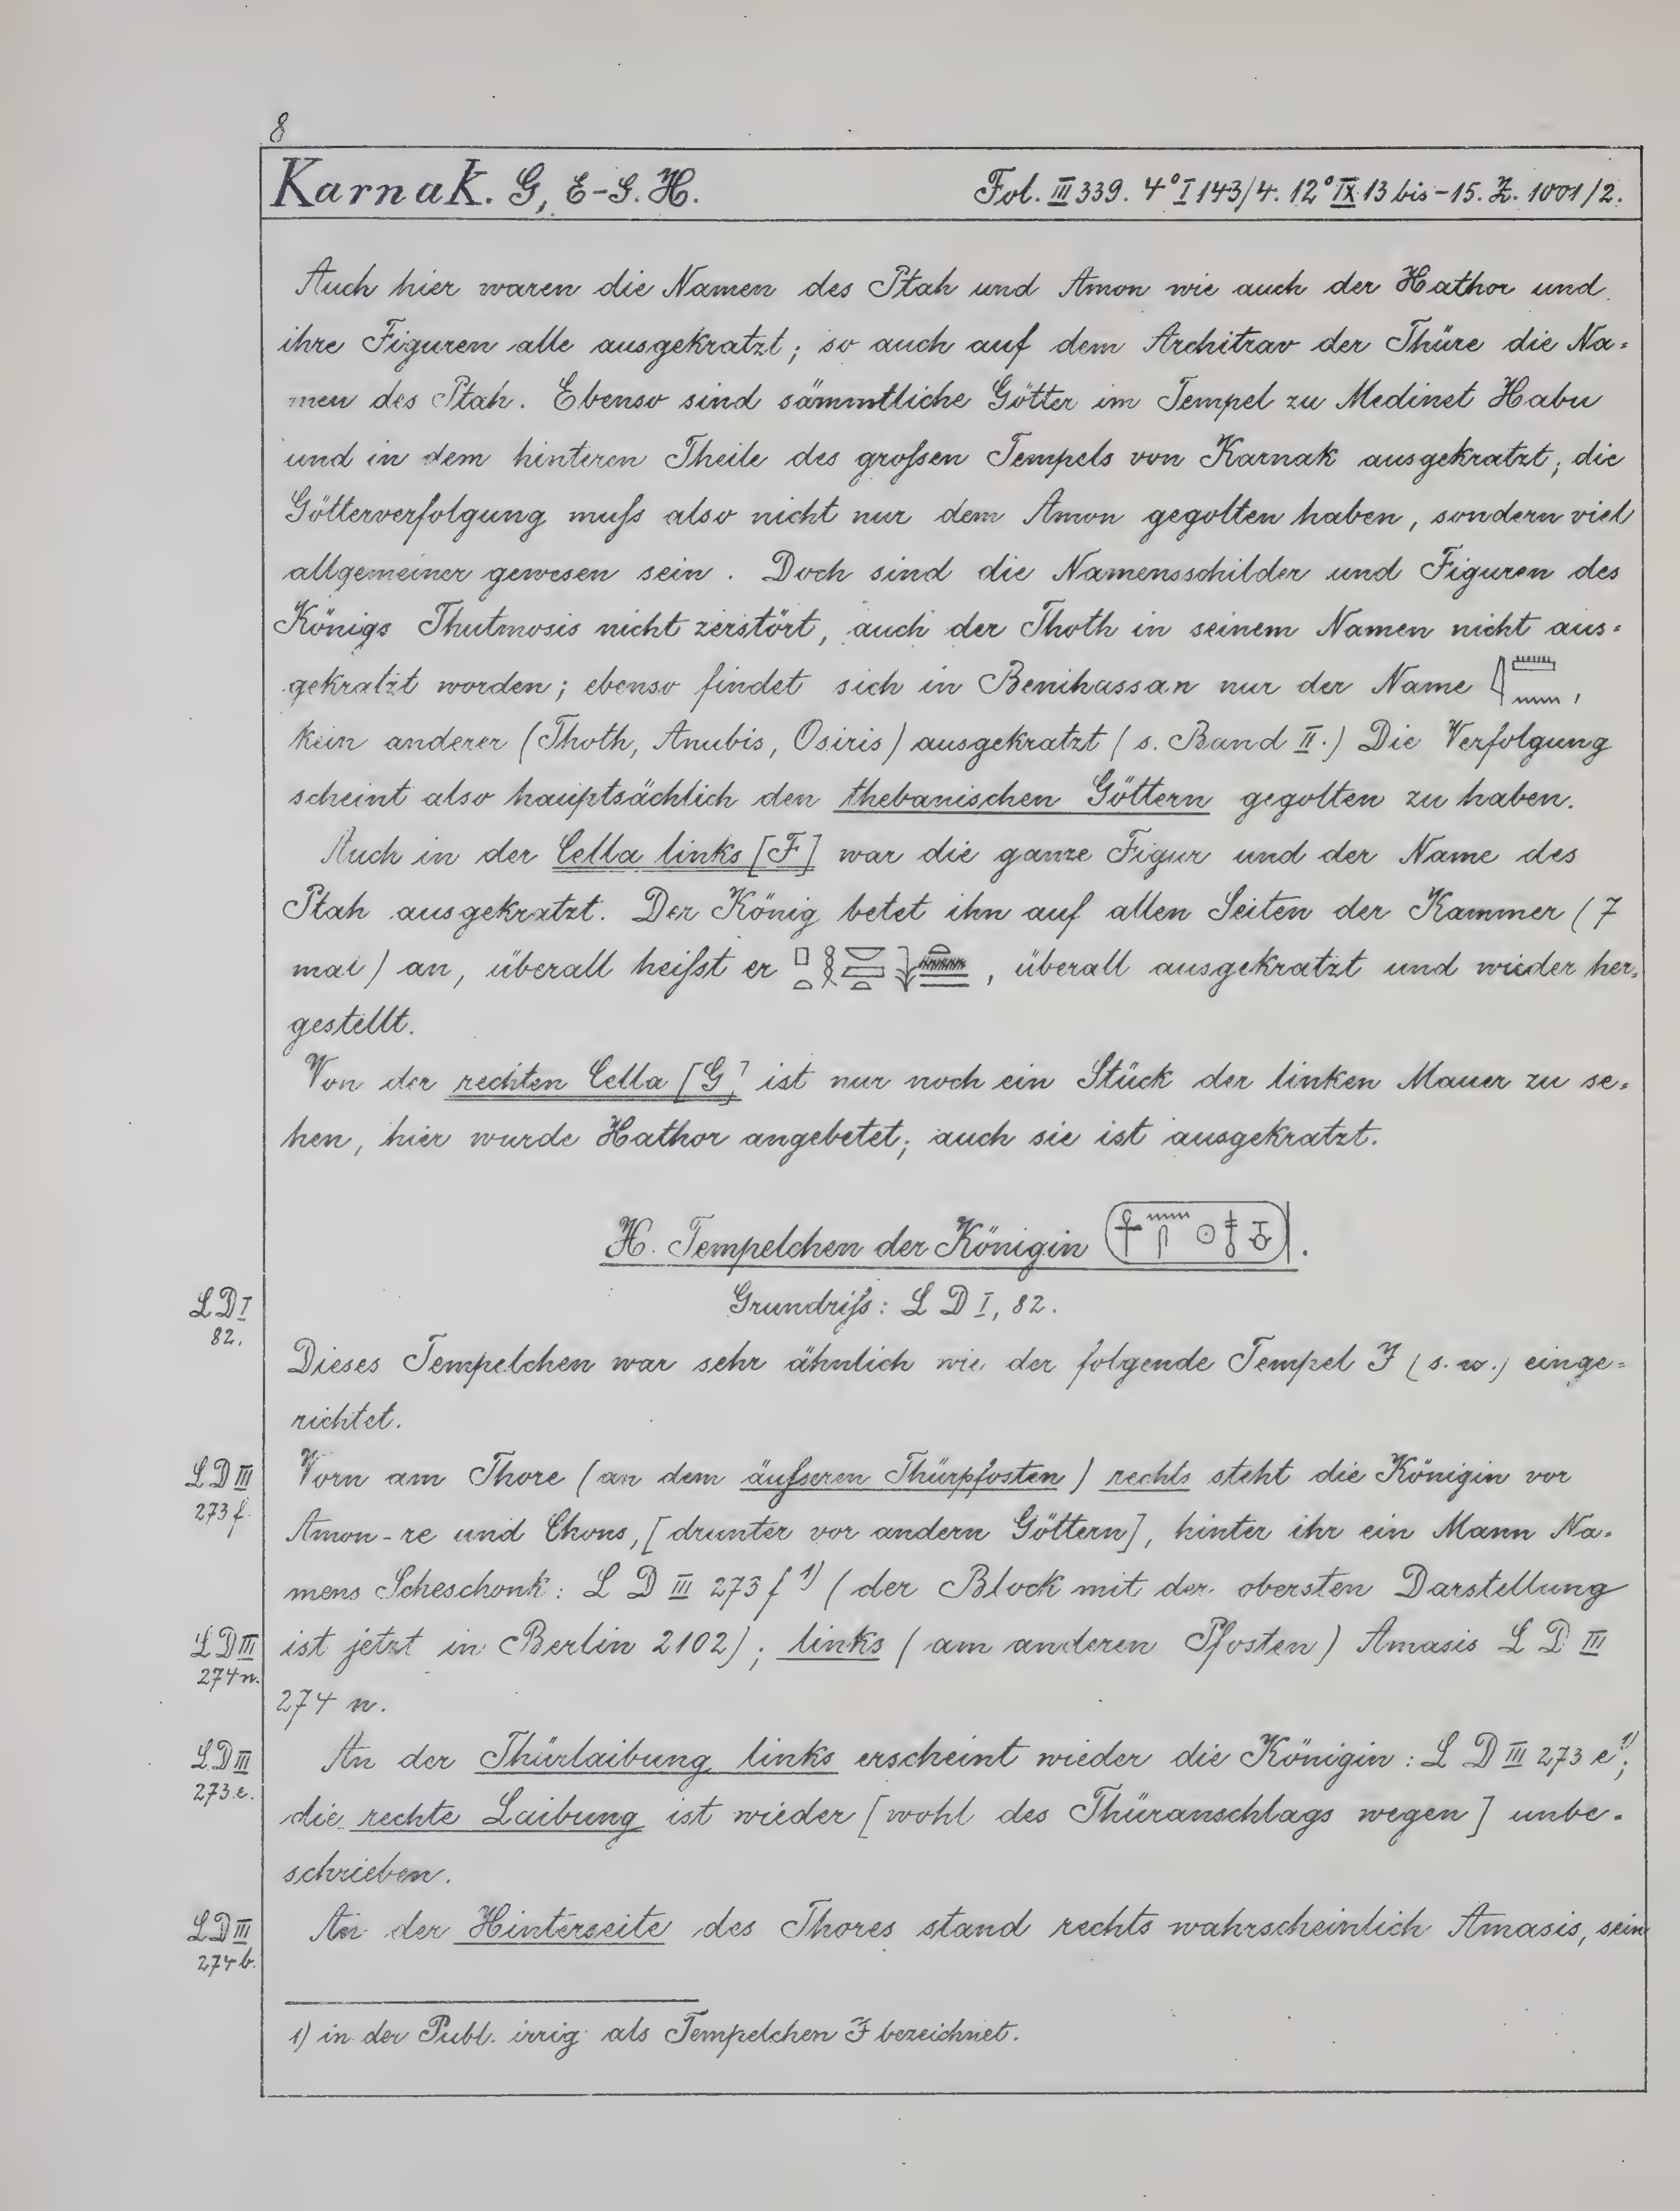 8
Karnak. G, E-G. H.
Fol. III 339. 4° I 143/4. 12° IX 13 bis - 15. Z. 1001/2.
Auch hier waren die Namen des Ptah und Amon wie auch der Hathor und
ihre Figuren alle ausgekratzt; so auch auf dem Architrav der Thüre die Na-
men des Ptah. Ebenso sind sämmtliche Götter im Tempel zu Medinet Habu
und in dem hinteren Theile des großen Tempels von Karnak ausgekratzt, die
Götterverfolgung muß also nicht nur dem Amon gegolten haben, sondern viel
allgemeiner gewesen sein. Doch sind die Namensschilder und Figuren des
Königs Thutmosis nicht zerstört, auch der Thoth in seinem Namen nicht aus-
gekratzt worden; ebenso findet sich in Benihassan nur der Name 𓇋𓏠𓈖,
kein anderer (Thoth, Anubis, Osiris) ausgekratzt (s. Band II.) Die Verfolgung
scheint also hauptsächlich den thebanischen Göttern gegolten zu haben.
Auch in der Cella links [F] war die ganze Figur und der Name des
Ptah ausgekratzt. Der König betet ihn auf allen Seiten der Kammer (7
mal) an, überall heißt er , überall ausgekratzt und wieder her-
gestellt.
Von der rechten Cella [G] ist nur noch ein Stück der linken Mauer zu se-
hen, hier wurde Hathor angebetet; auch sie ist ausgekratzt.
H. Tempelchen der Königin .
LD I
82.
Grundriß: L D I, 82.
Dieses Tempelchen war sehr ähnlich wie der folgende Tempel J (s. w.) einge-
richtet.
LD III
273 f.
Vorn am Thore (an dem äußeren Thürpfosten) rechts steht die Königin vor
Amon-re und Chons, [drunter vor andern Göttern], hinter ihr ein Mann Na-
mens Scheschonk: L D III 273 f 1) (der Block mit der obersten Darstellung
LD III
274 n.
ist jetzt in Berlin 2102); links (am anderen Pfosten) Amasis L D III
274 n.
LD III
273 e.
An der Thürlaibung links erscheint wieder die Königin: L D III 273 e 1);
die rechte Laibung ist wieder [wohl des Thüranschlags wegen] unbe-
schrieben.
LD III
274 b.
An der Hinterseite des Thores stand rechts wahrscheinlich Amasis, sein
1) in der Publ. irrig als Tempelchen J bezeichnet.